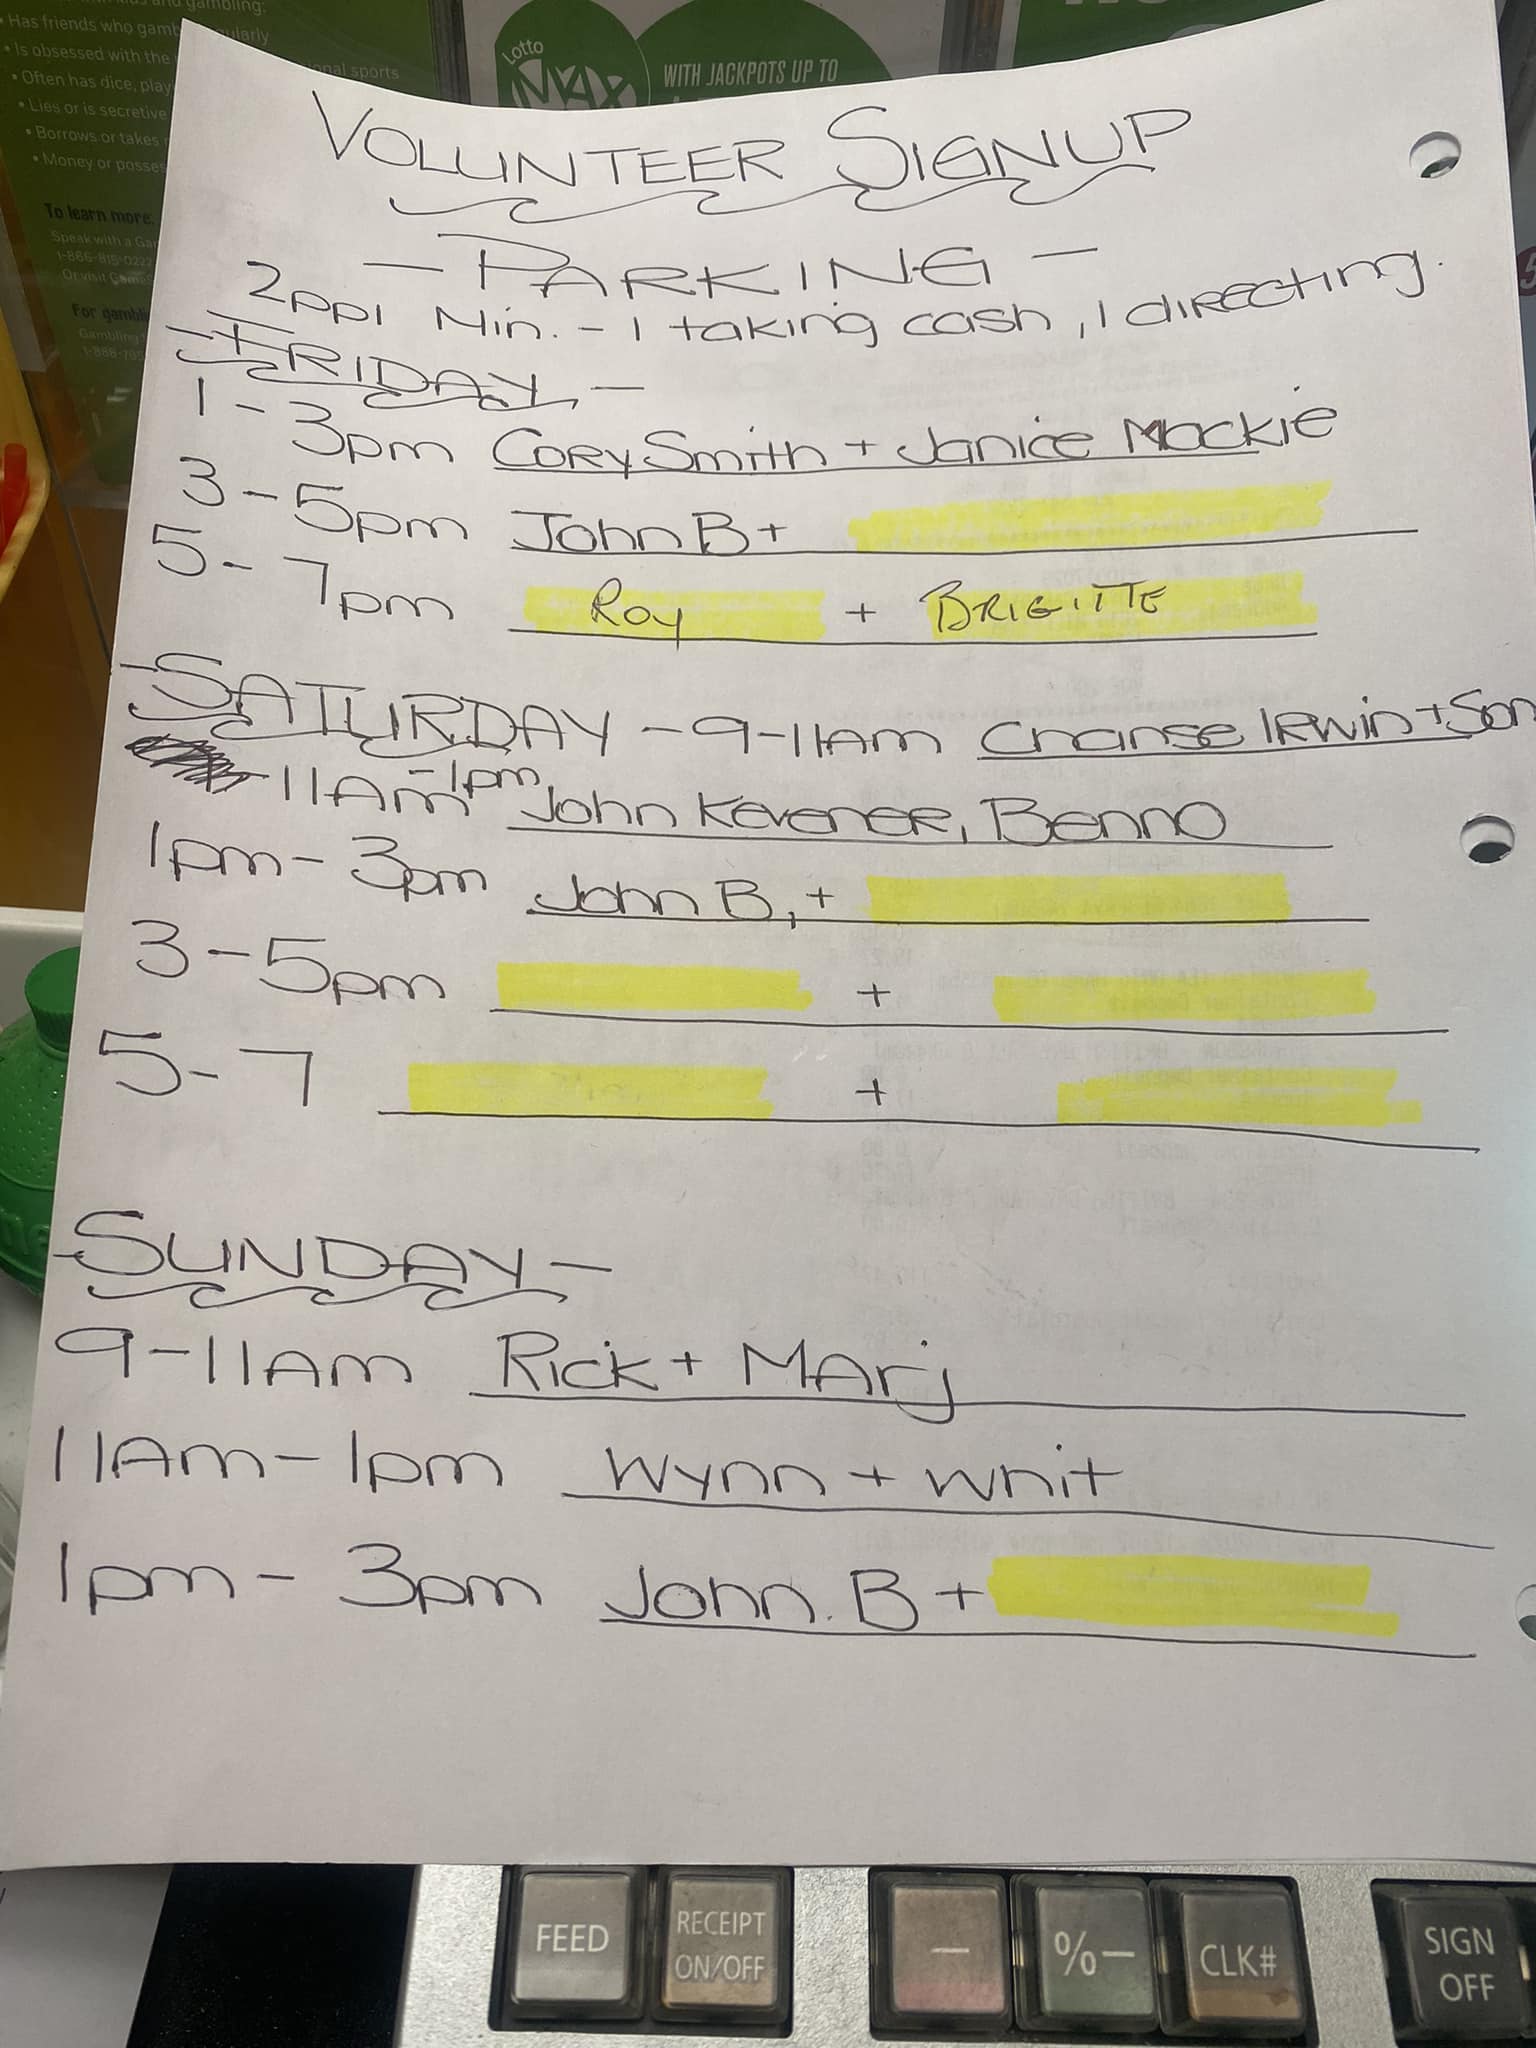 and gambling:
• Has friends who gamb
ularly
• Is obsessed with the
onal sports
• Often has dice, play
• Lies or is secretive
• Borrows or takes
• Money or posses
To learn more.
Speak with a Ga
1-866-815-0222
Or visit Game
For gambli
Gambling
1-888-795
Lotto
MAX
WITH JACKPOTS UP TO
VOLUNTEER SIGNUP
- PARKING -
2ppl Min. - 1 taking cash, 1 directing.
- FRIDAY -
1 - 3pm Cory Smith + Janice Mackie
3 - 5pm John B +
5 - 7pm Roy + BRIGITTE
- SATURDAY - 9-11am Chanse Irwin + Son
11AM - 1pm John Kevener, Benno
1pm - 3pm John B, +
3 - 5pm +
5 - 7 +
- SUNDAY -
9 - 11AM Rick + MArj
11AM - 1pm Wynn + Whit
1pm - 3pm John. B +
FEED
RECEIPT
ON/OFF
—
%—
CLK#
SIGN
OFF